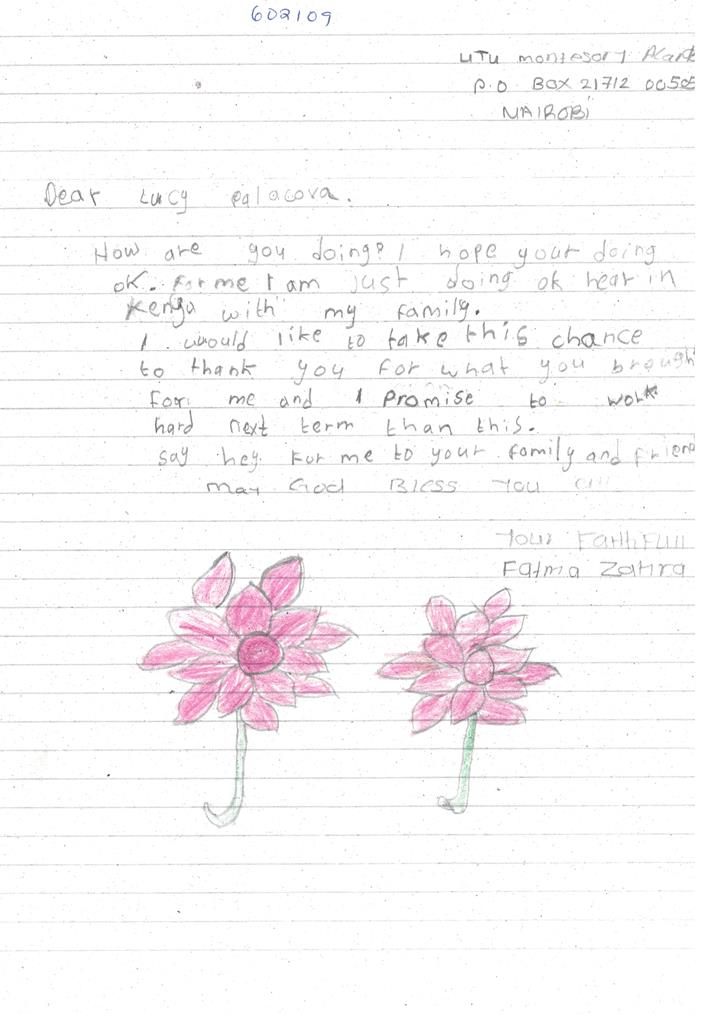 602109
UTU montesory
P.O BOX 21712 00505
NAIROBI
Dear Lucy palacova.
How are you doing? I hope your doing
ok. For me I am just doing ok hear in
Kenya with my family.
I would like to take this chance
to thank you for what you brough
for me and I promise to work
hard next term than this.
say hey for me to your family and friend
May God Bless You all
Your Faithfull
Fatma Zahra